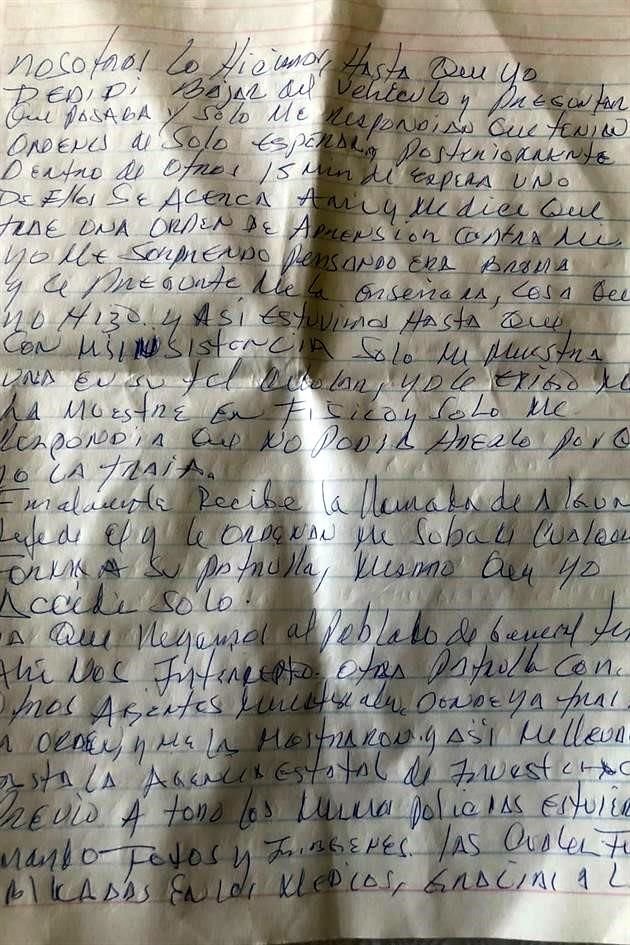 nosotros lo Hicimos, Hasta Que yo
DEDIDI BAJAR del Vehiculo y PREGUNTAR
Que PASABA y Solo Me Respondian Que tenian
ORDENES de Solo ESPERAR, Posteriormente
Dentro de Otros 15 min de ESPERA UNO
DE Ellos Se Acerca A mi y Me dice Que
trae UNA ORDEN DE APRENSION CONTRA Mi
yo Me SORPRENDO PENSANDO ERA BROMA
y Le PREGUNTE Me la ENSEÑARA, COSA Que
NO Hizo y ASi Estuvimos HASTA Que
CON Mi INSISTENCIA Solo Me MUESTRA
UNA EN SU tel Celular, yo Le EXIGO Me
LA MUESTRE EN FiSiCO y Solo Me
Respondia Que NO PODIA HACERLO POR Q
NO LA TRAIA.
Finalmente Recibe la llamada de Algun
Jefe de el y Le ORDENAN Me Suba de Cualqu
FORMA A SU PATRULLA, Mismo Que yo
Accedi Solo.
YA Que llegamos al Poblado de General
Ahi Nos Intercepto Otra Patrulla CON
Otros AGENTES DONDE YA TRAI
LA ORDEN, y Me LA MOSTRARON y ASi Me llevar
HASTA LA AGENCIA ESTATAL de INVESTIGAC
PREVIO A todo los Mismos Policias ESTUVIE
tomando Fotos y IMAGENES. LAS Cuales Fu
PUBLICADAS EN los MEDIOS, GRACIAS A L